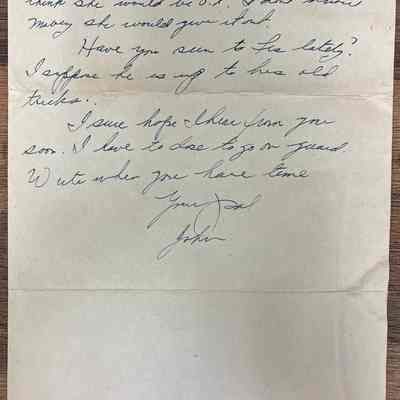 think she would be O.K. I don't know
mabey she would give it up.
Have you seen to Les lately?
I suppose he is up to his old
tricks..
I sure hope I hear from you
soon. I have to close to go on guard.
Write when you have time
Your Pal
John